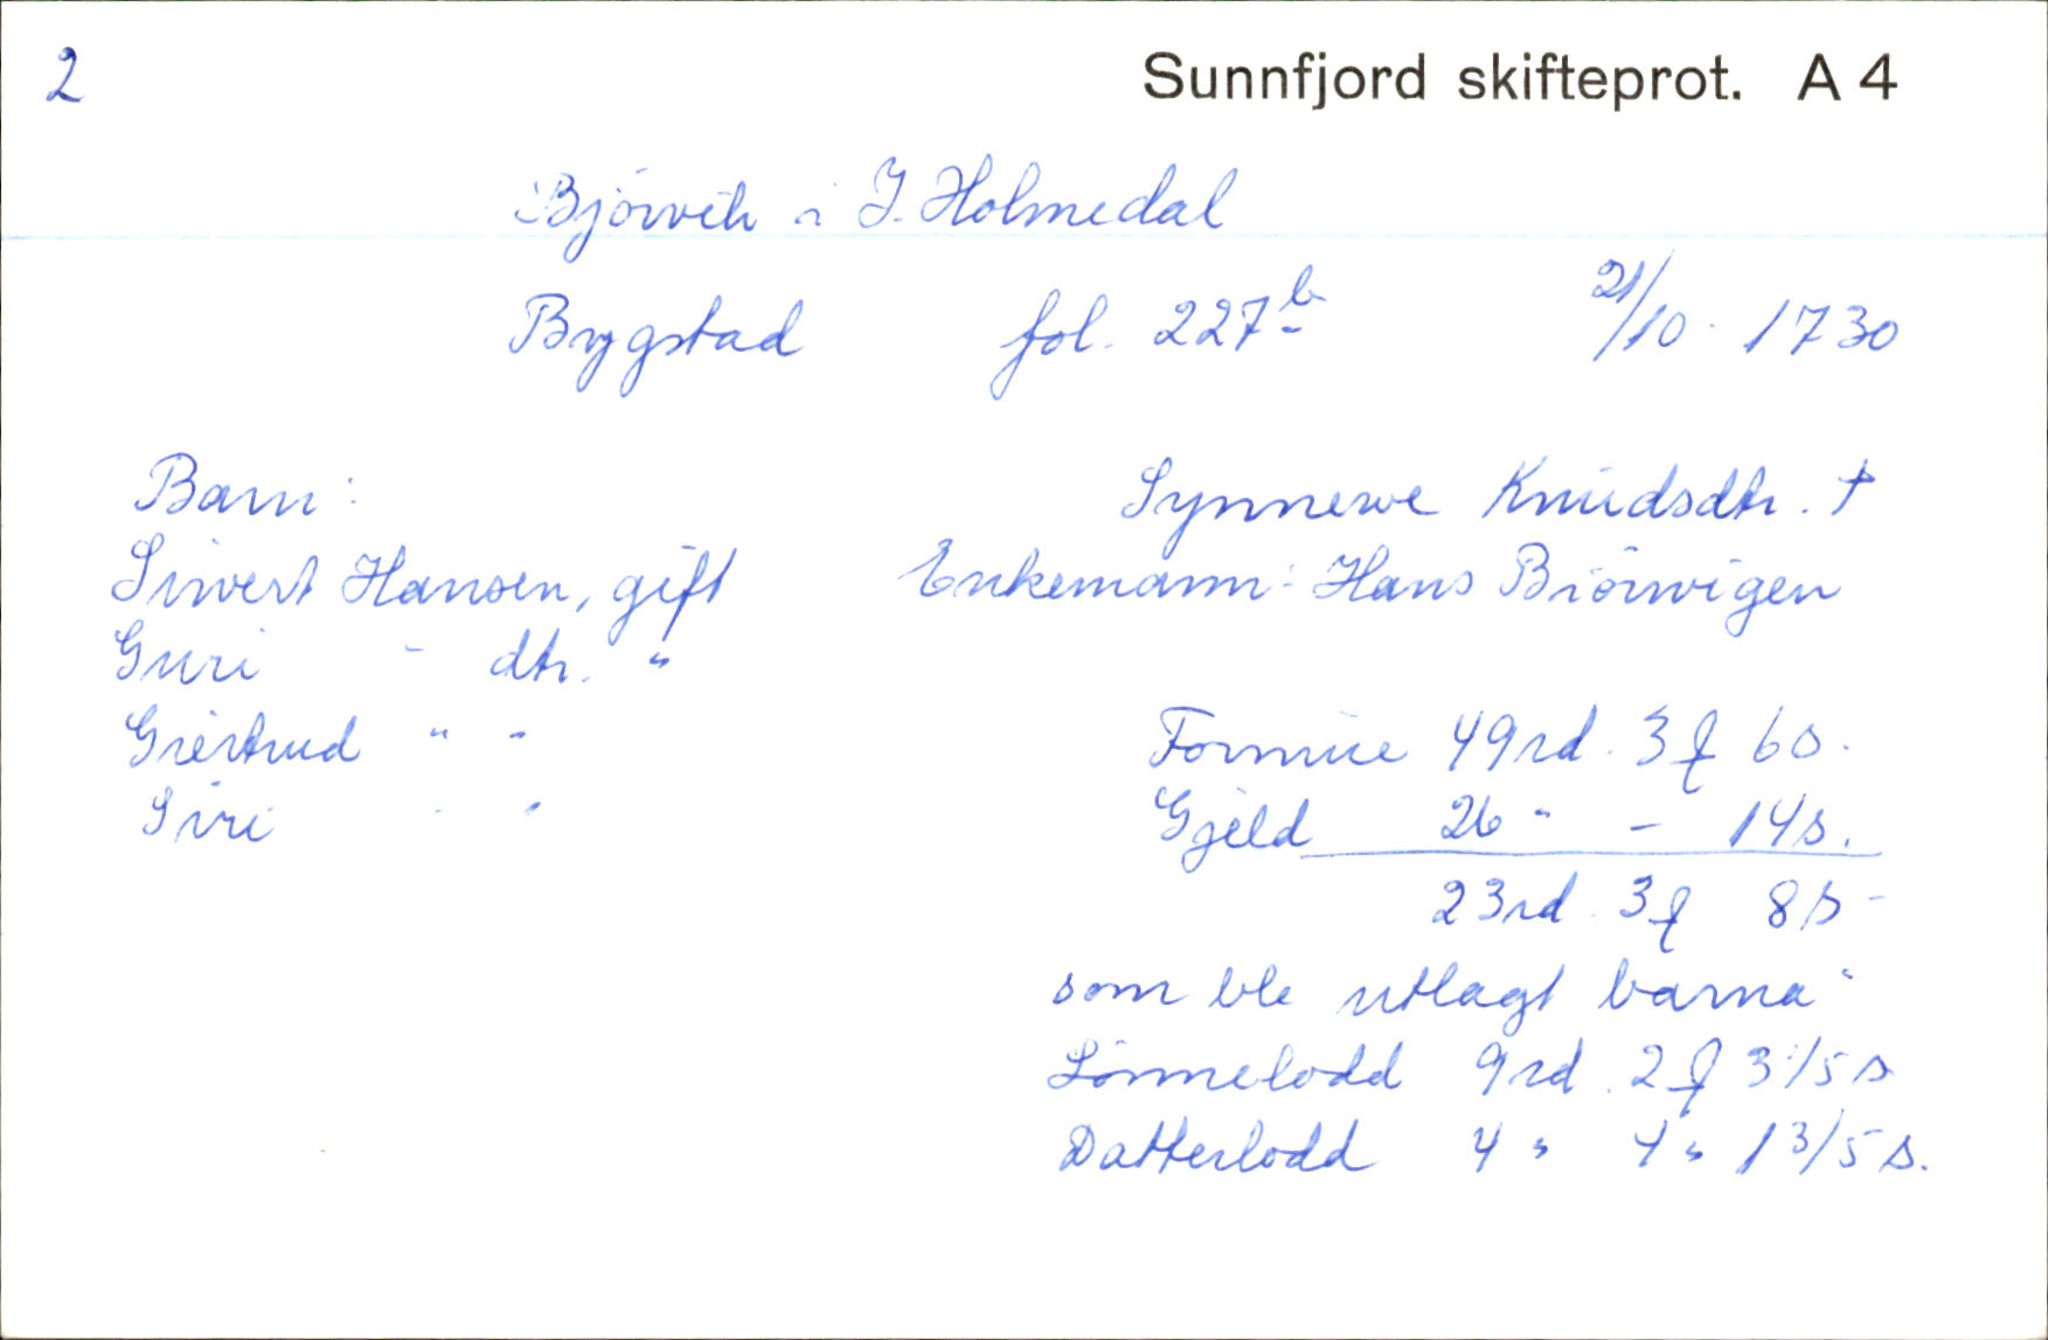 2
Sunnfjord skifteprot. A 4
Björvik i J. Holmedal
Bygstad fol. 227b 21/10 1730
Barn:
Sivert Hansen, gift
Guri - dtr. "
Giertrud " "
Siri " "
Synnewe Knudsdtr. †
Enkemann: Hans Biörwigen
Formue 49rd. 3 ƒ 6 s.
Gjeld 26 " - 14 s.
23rd. 3 ƒ 8 s -
som ble utlagt barna:
Sönnelodd 9 rd. 2 ƒ 3 1/5 s
Datterlodd 4 " 4 " 1 3/5 s.